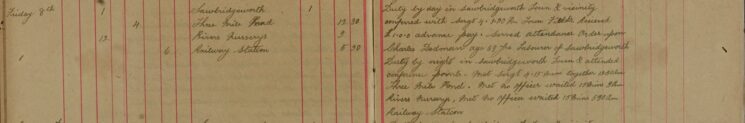 Friday 8th 1 Sawbridgeworth 1
4 Three Mile Pond 12 30
12 Rivers Nurserys 3
6 Railway Station 5 30
Duty by day in Sawbridgeworth Town & vicinity
conferred with Sergt 4. 1.30 Pm Town
£1-0-0 advance pay. Served attendance Order upon
Charles age 59 Yrs Labourer of Sawbridgeworth
Duty by night in Sawbridgeworth Town & attended
conference points. Met Sergt 4. 15 mins together
Three Mile Pond. Met no officer waited 15 mins 3 am
Rivers Nurserys, Met no Officer waited 15 mins 5.30 am
Railway Station